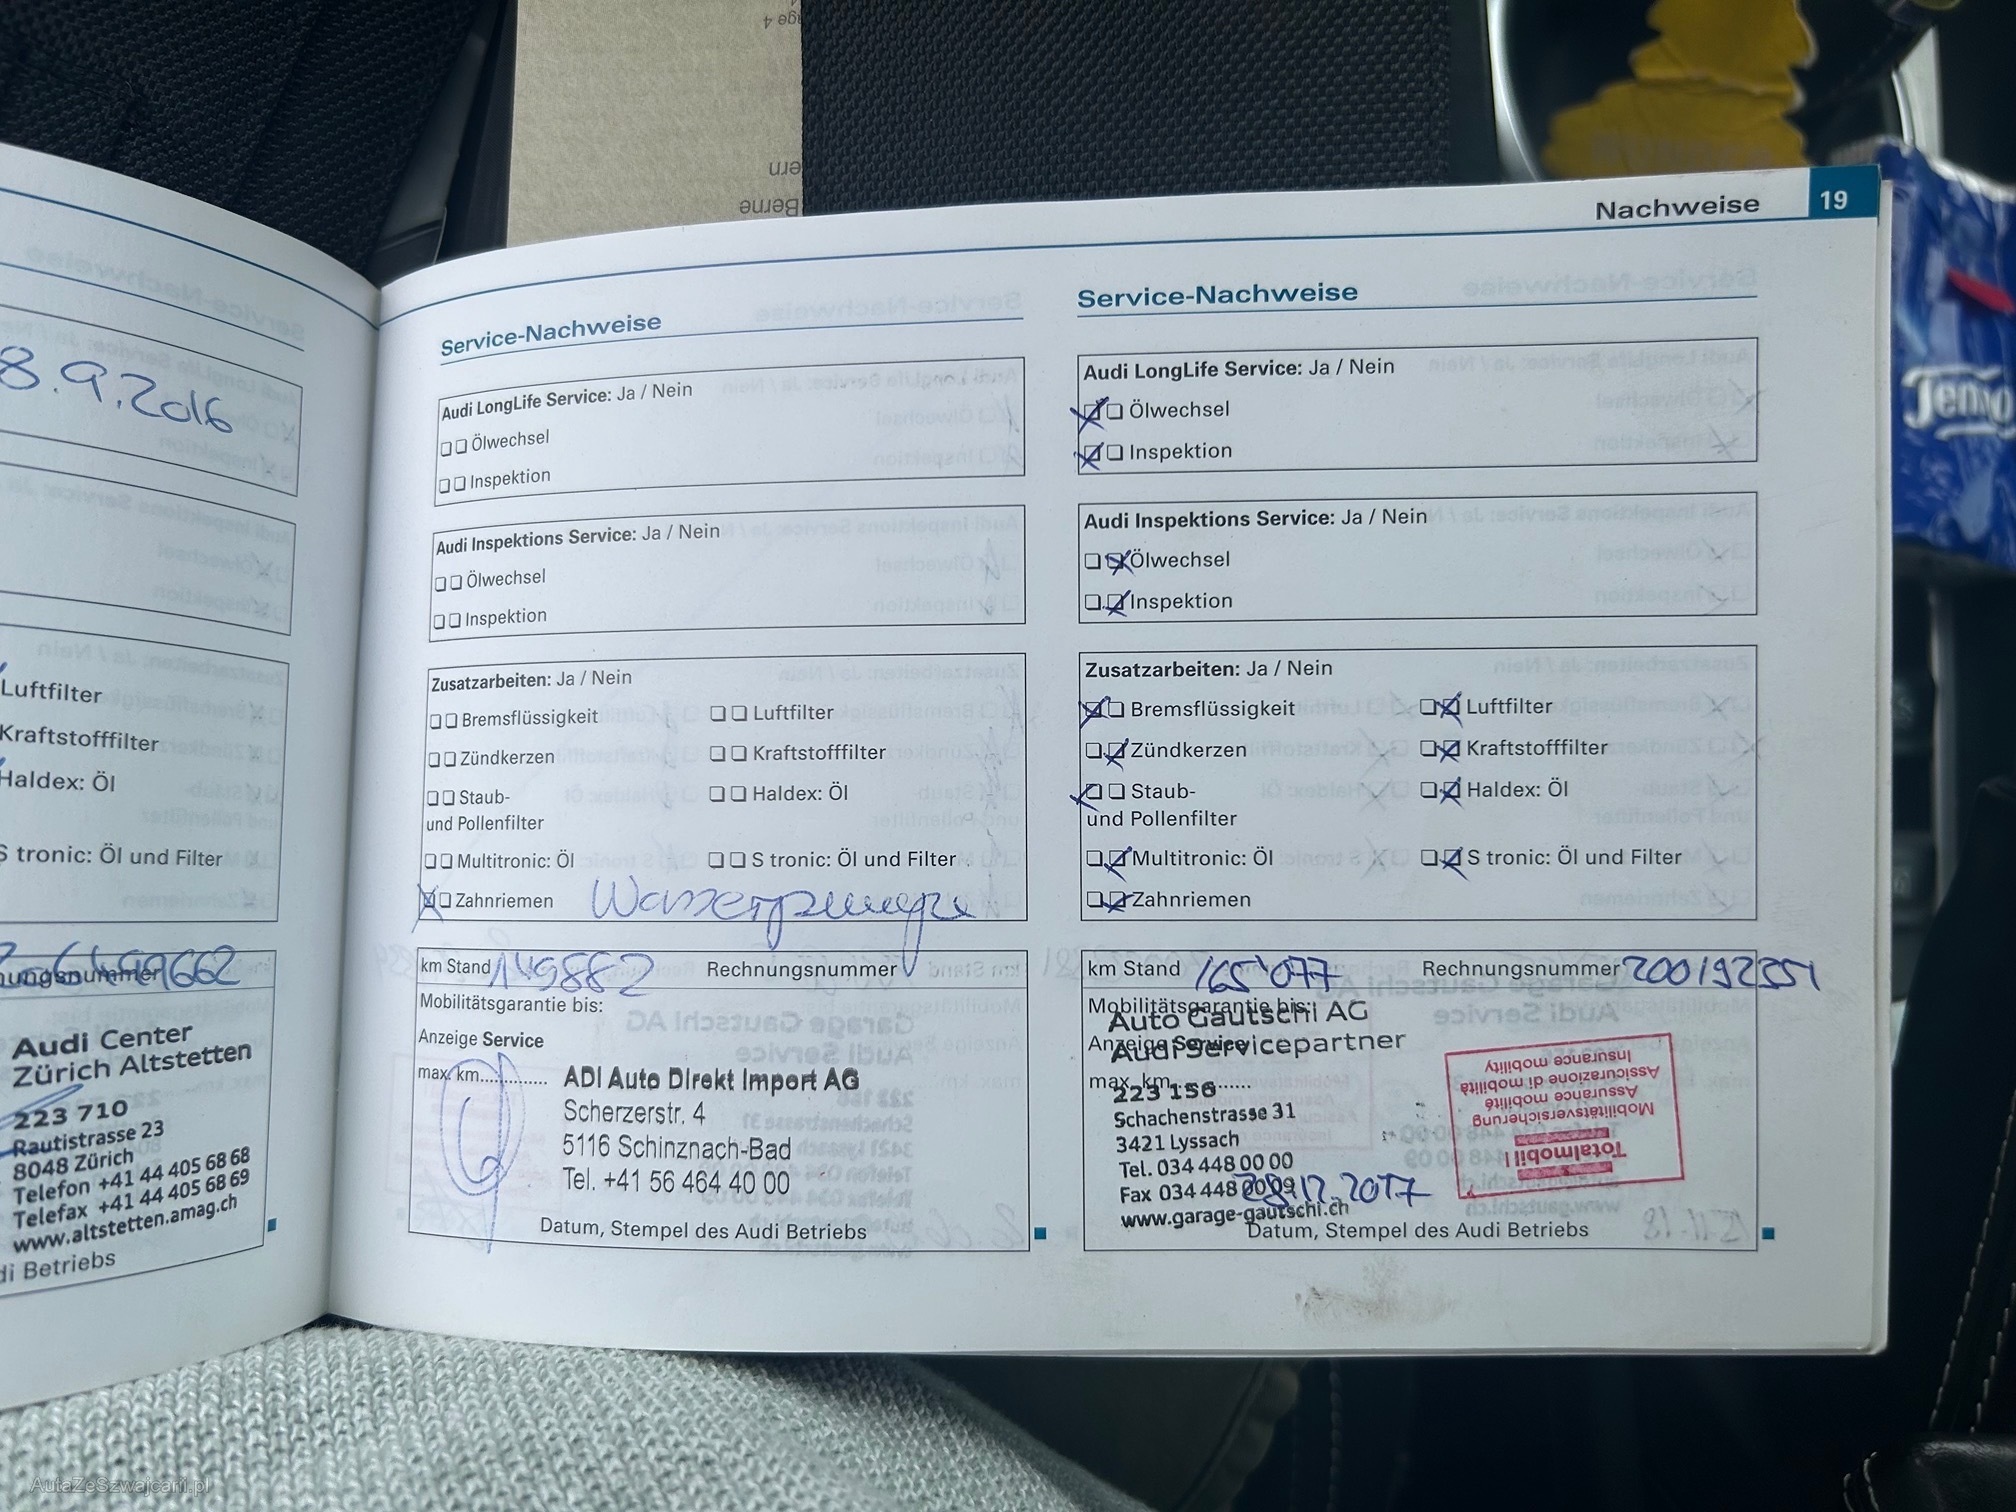 Nachweise 19
8.9.2016
Luftfilter
Kraftstofffilter
Haldex: Öl
S tronic: Öl und Filter
Audi Center
Zürich Altstetten
223 710
Rautistrasse 23
8048 Zürich
Telefon +41 44 405 68 68
Telefax +41 44 405 68 69
www.altstetten.amag.ch
di Betriebs
Service-Nachweise
Audi LongLife Service: Ja / Nein
Ölwechsel
Inspektion
Audi Inspektions Service: Ja / Nein
Ölwechsel
Inspektion
Zusatzarbeiten: Ja / Nein
Bremsflüssigkeit Luftfilter
Zündkerzen Kraftstofffilter
Staub- Haldex: Öl
und Pollenfilter
Multitronic: Öl S tronic: Öl und Filter
Zahnriemen Wasserpumpe
km Stand 149882 Rechnungsnummer
Mobilitätsgarantie bis:
Anzeige Service
max. km............
ADI Auto Direkt Import AG
Scherzerstr. 4
5116 Schinznach-Bad
Tel. +41 56 464 40 00
Datum, Stempel des Audi Betriebs
Service-Nachweise
Audi LongLife Service: Ja / Nein
Ölwechsel
Inspektion
Audi Inspektions Service: Ja / Nein
Ölwechsel
Inspektion
Zusatzarbeiten: Ja / Nein
Bremsflüssigkeit Luftfilter
Zündkerzen Kraftstofffilter
Staub- Haldex: Öl
und Pollenfilter
Multitronic: Öl S tronic: Öl und Filter
Zahnriemen
km Stand 165'077 Rechnungsnummer 200192351
Mobilitätsgarantie bis:
Auto Gautschi AG
Anzeige Service
Audi Servicepartner
max. km............
223 156
Schachenstrasse 31
3421 Lyssach
Tel. 034 448 00 00
Fax 034 448 00 09
www.garage-gautschi.ch
12.2017
Datum, Stempel des Audi Betriebs
Totalmobil!
Mobilitätsversicherung
Assurance mobilité
Assicurazione di mobilità
Insurance mobility
Berne
Tempo
AutaZeSzwajcarii.pl